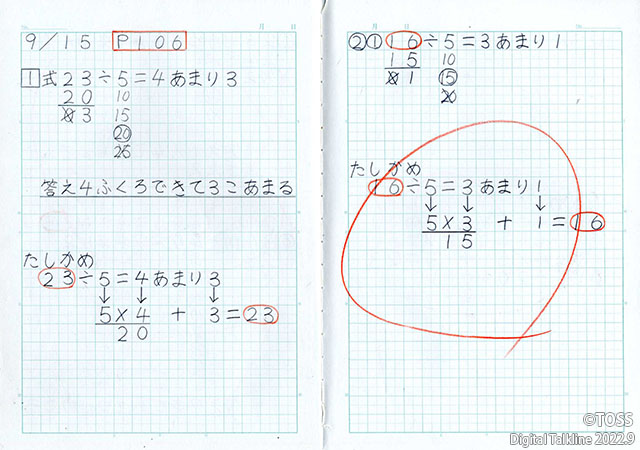 月 日
9/15 P106
1 式 23÷5=4あまり3
20 10
03 15
20
25
答え4ふくろできて3こあまる
たしかめ
23÷5=4あまり3
↓ ↓ ↓
5×4 + 3=23
20
月 日
②① 16÷5=3あまり1
15 10
01 15
20
たしかめ
16÷5=3あまり1
↓ ↓ ↓
5×3 + 1=16
15
©TOSS
Digital Talkline 2022.9